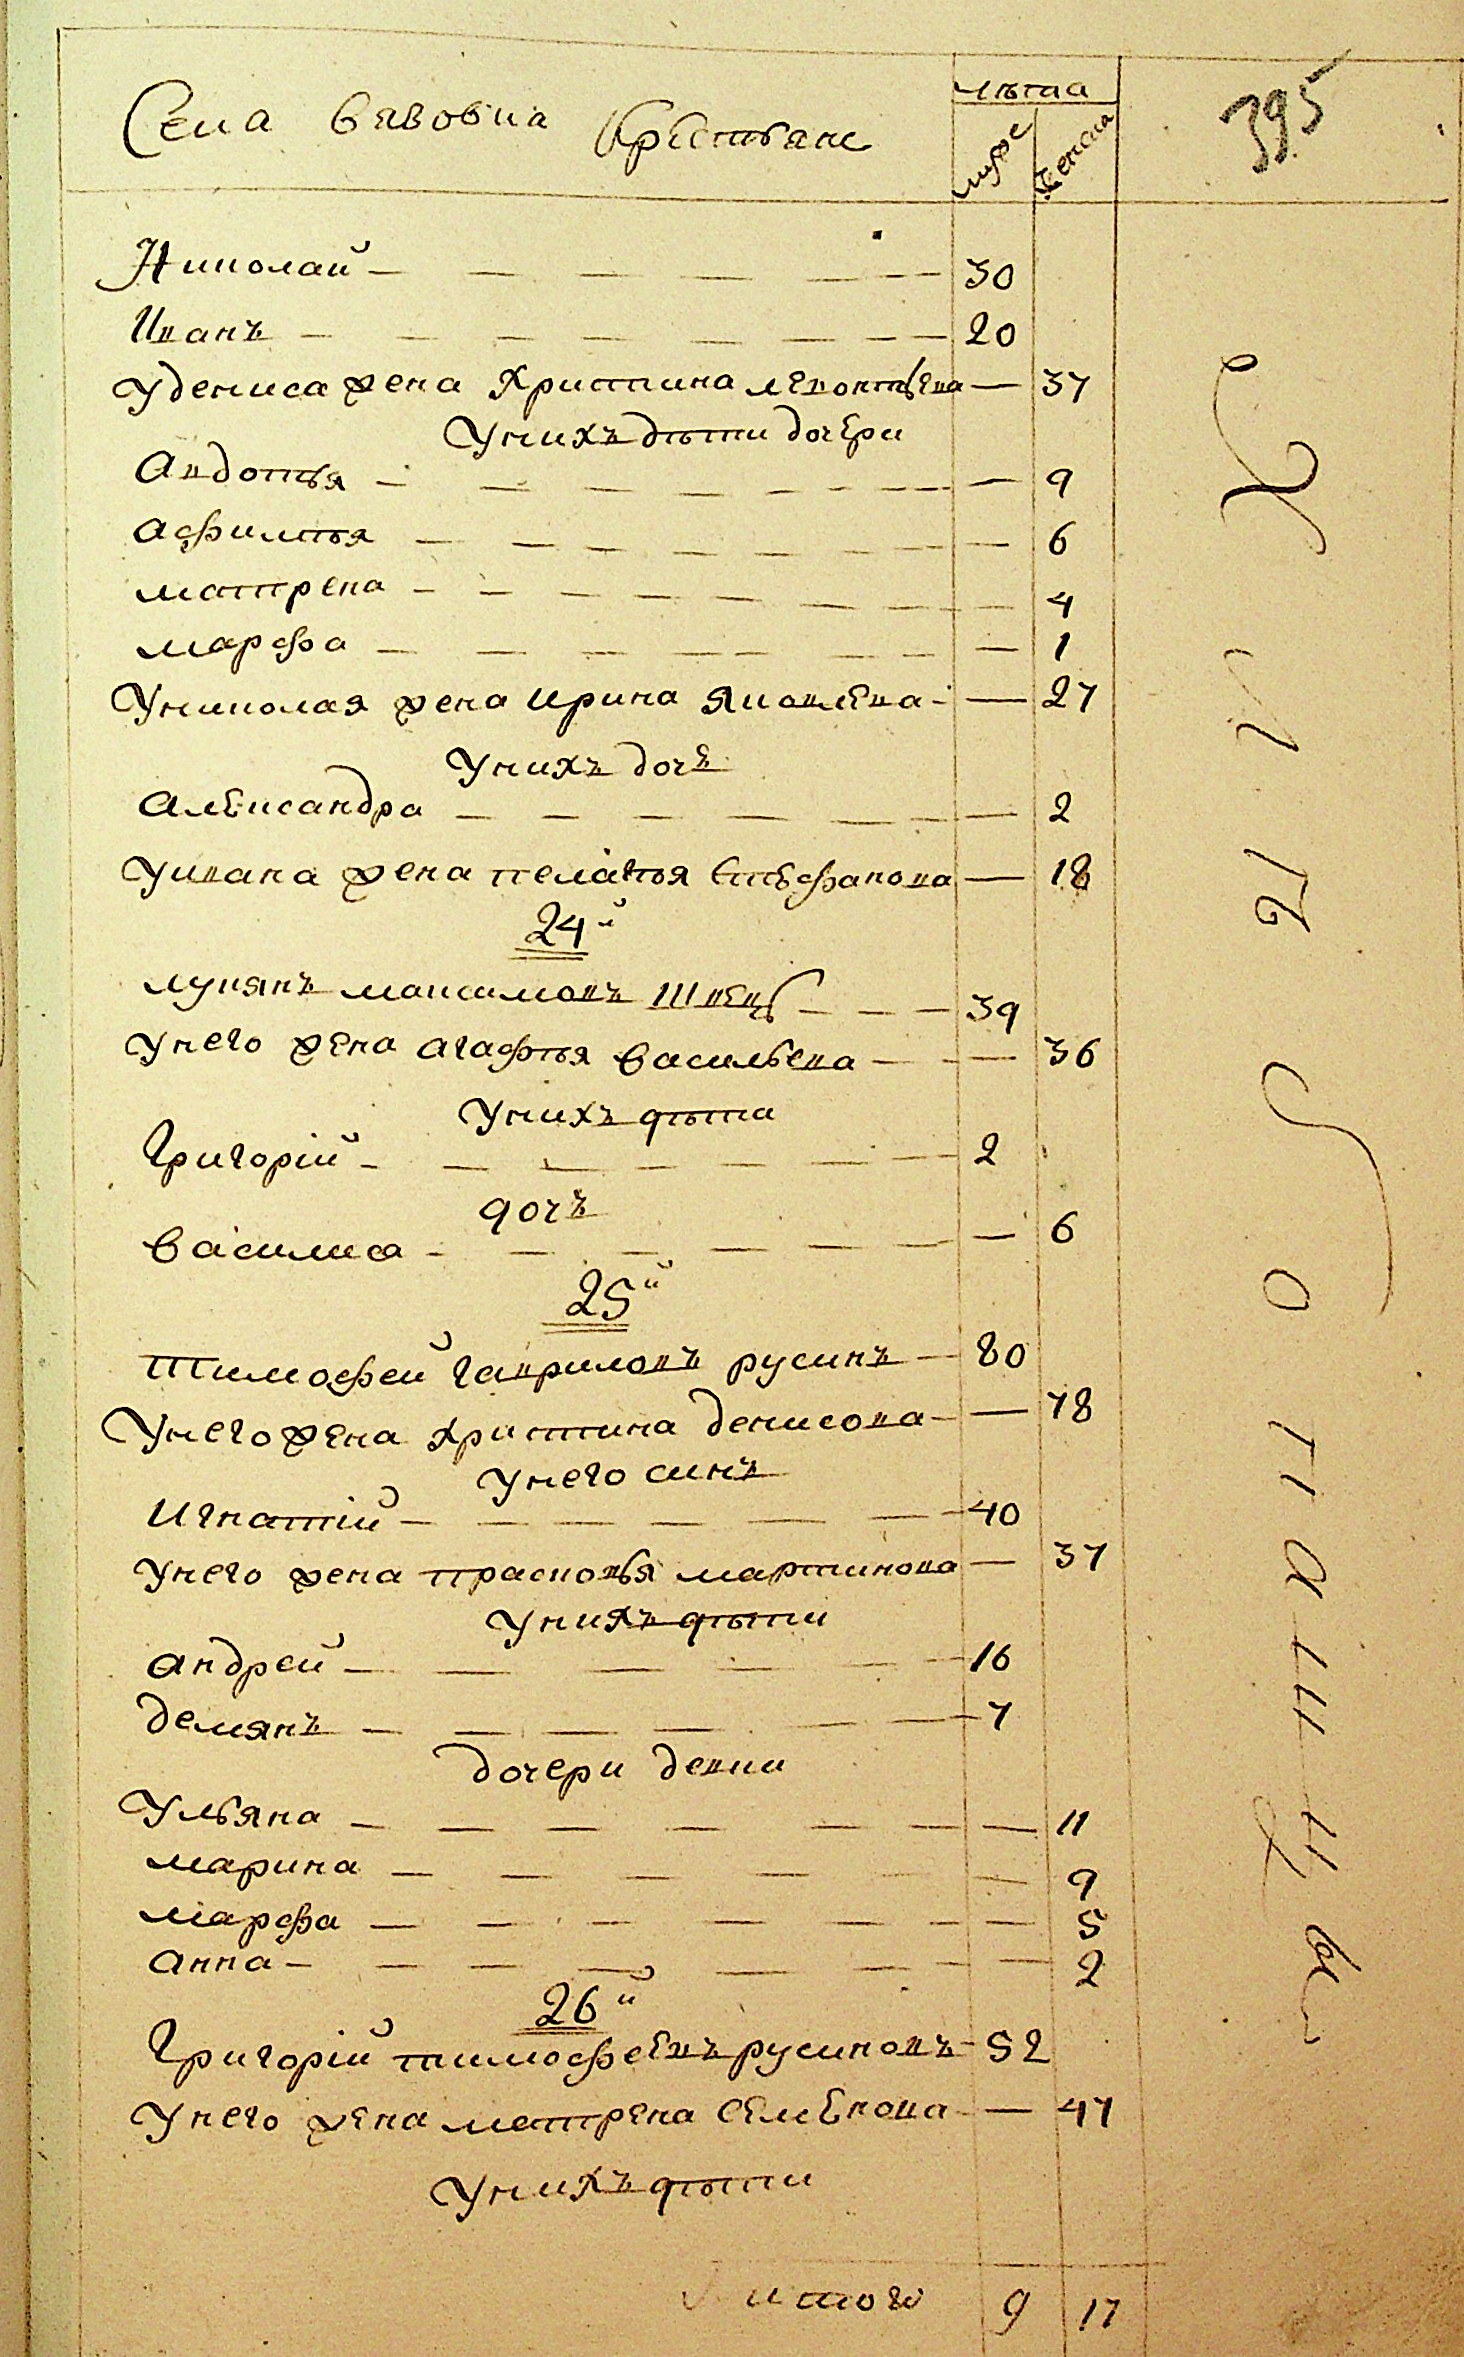 Села Вязовка Крестьяне
лѣта
муже
женска
395
Николай — 30
Иванъ — 20
У дениса жена Христина левонтьева — 37
У нихъ дѣти дочери
Авдотья — 9
Афимья — 6
матрена — 4
марфа — 1
У николая жена Ирина Яковлева — 27
У нихъ дочъ
Александра — 2
У ивана жена пелагѣя Стѣфанова — 18
24й
лукянъ максимовъ Швецъ — 39
У него жена агафья Васильева — 36
У нихъ дѣти
Григорій — 2
дочъ
Василиса — 6
25й
Тимофей гавриловъ русинъ — 80
У него жена Христина денисова — 78
У него синъ
Игнатій — 40
У него жена прасковья мартинова — 37
У нихъ дѣти
андрей — 16
демянъ — 7
дочери девки
Ульяна — 11
марина — 9
марфа — 5
анна — 2
26й
Григорій тимофеевъ русиновъ — 52
У него жена матрена Семенова — 47
У нихъ дѣти
итого 9 17